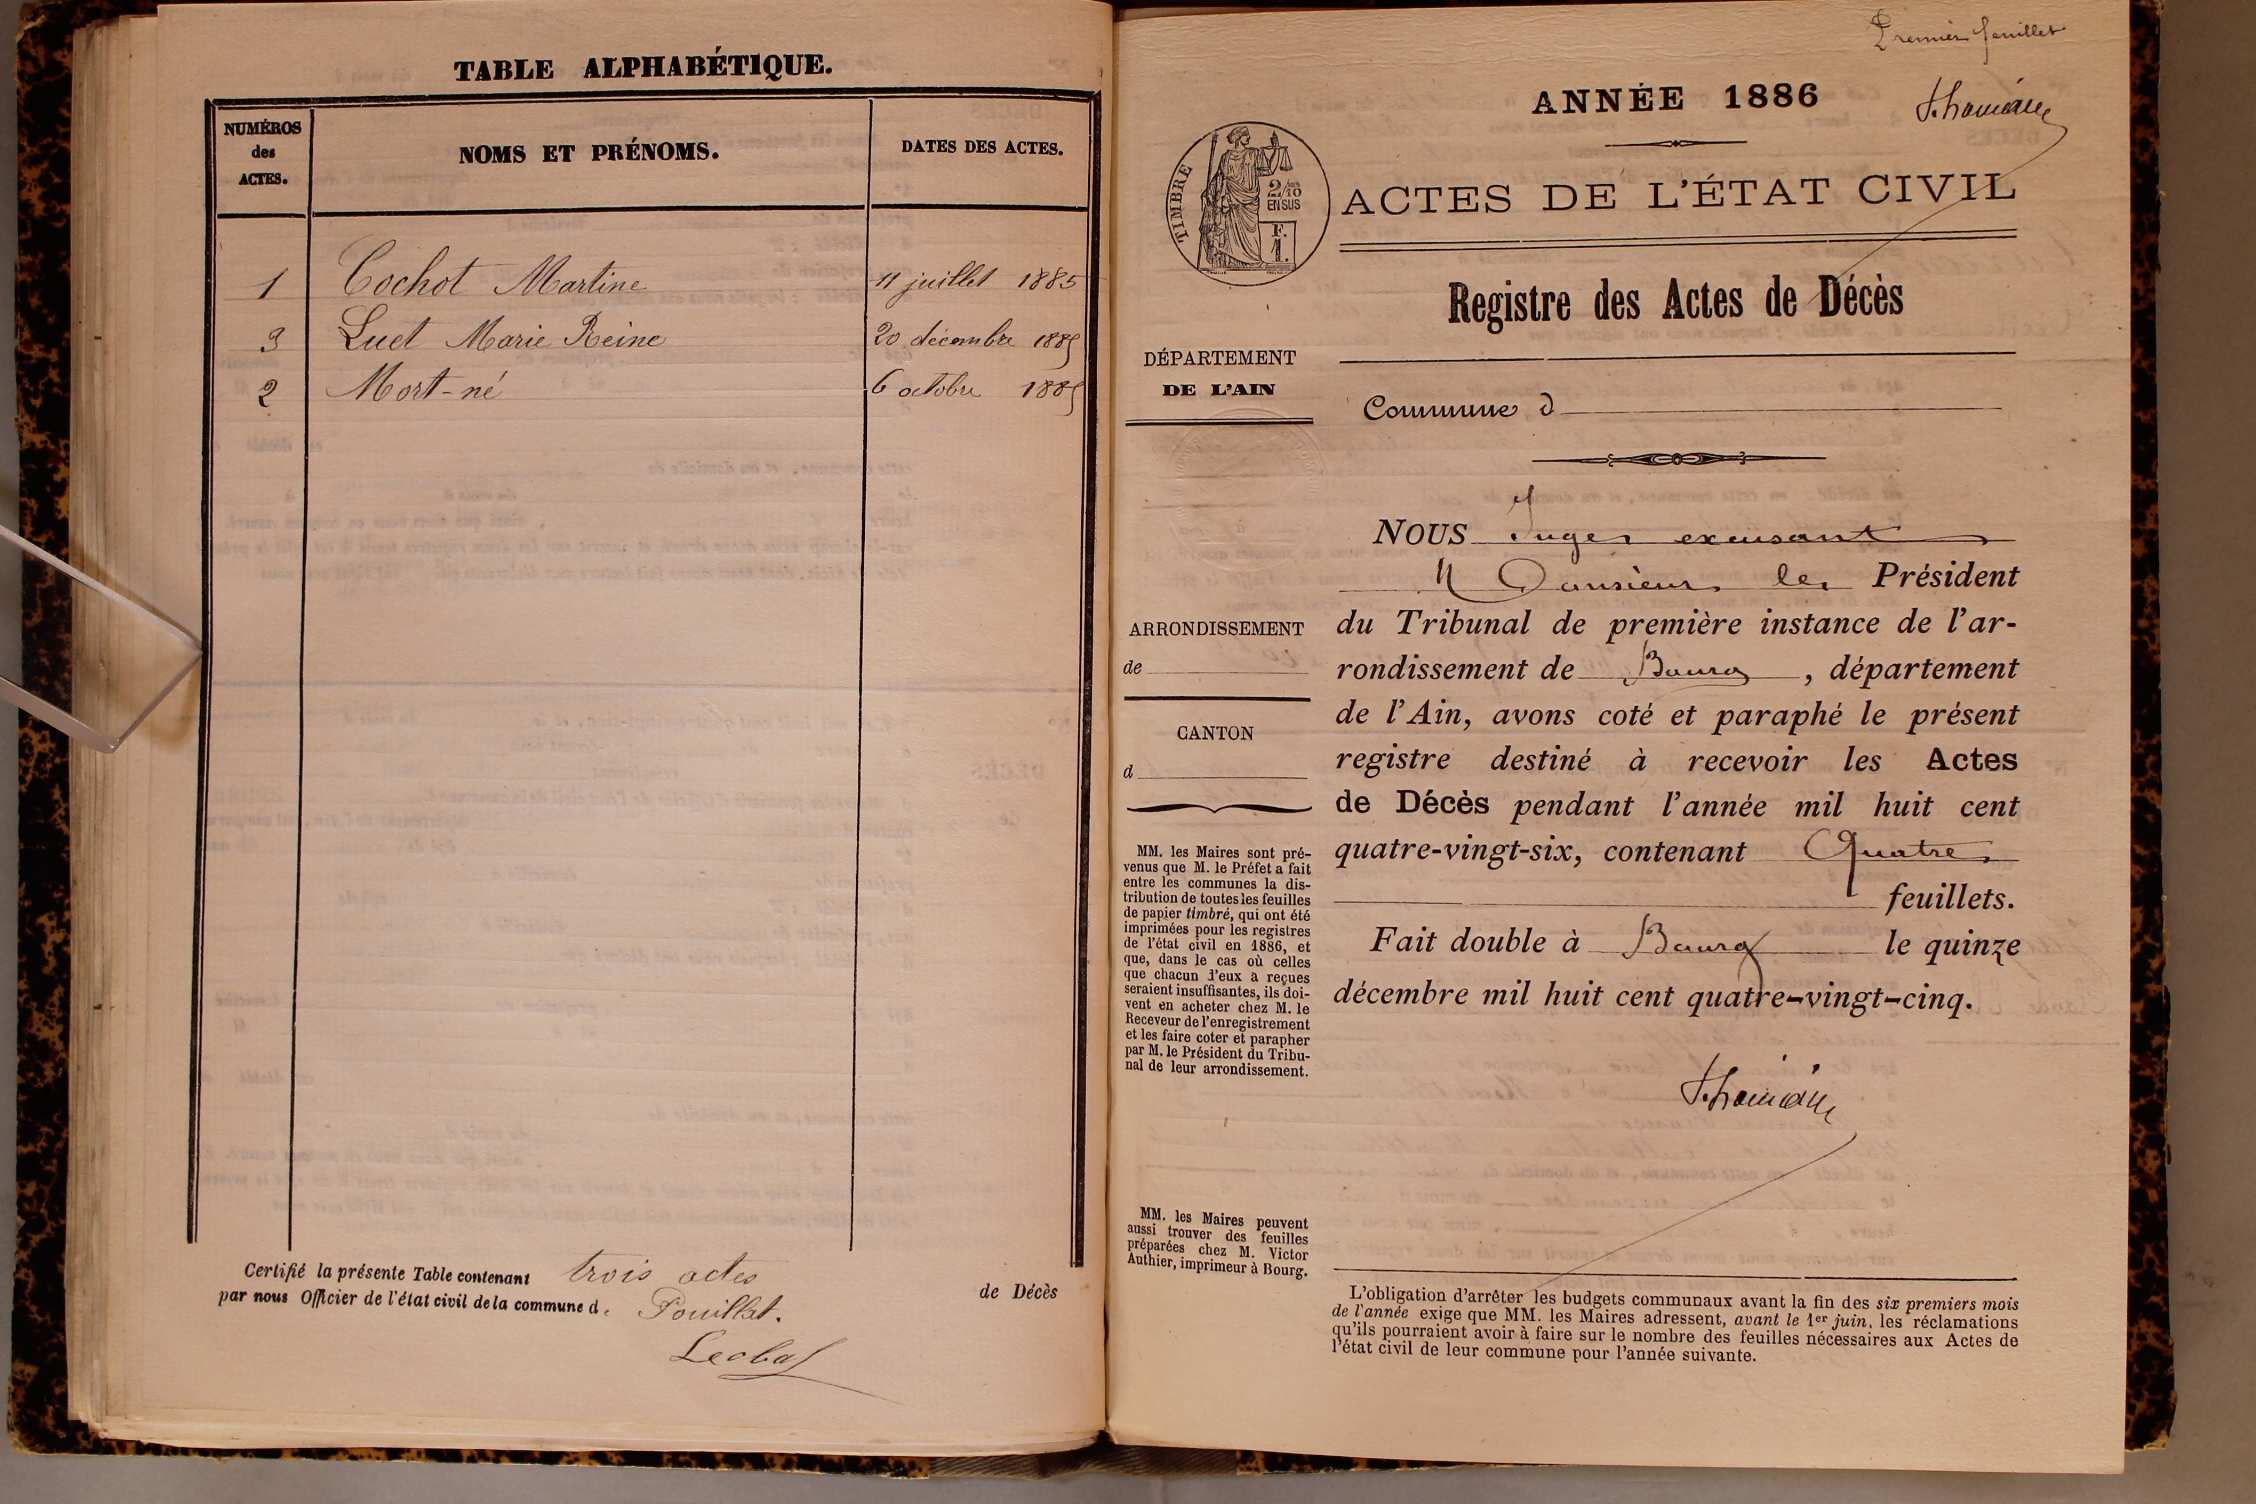 TABLE ALPHABÉTIQUE.
NUMÉROS
des
ACTES.
NOMS ET PRÉNOMS.
DATES DES ACTES.
1 Cochot Martine 11 juillet 1885
3 Luet Marie Reine 20 décembre 1885
2 Mort-né 6 octobre 1885
Certifié la présente Table contenant trois actes de Décès
par nous Officier de l'état civil de la commune de Pouillat.
Premier feuillet
ANNÉE 1886
TIMBRE
2/10
EN SUS
F.
1.
ACTES DE L'ÉTAT CIVIL
Registre des Actes de Décès
DÉPARTEMENT
DE L'AIN
Commune d
ARRONDISSEMENT
de
CANTON
d
MM. les Maires sont pré-
venus que M. le Préfet a fait
entre les communes la dis-
tribution de toutes les feuilles
de papier timbré, qui ont été
imprimées pour les registres
de l'état civil en 1886, et
que, dans le cas où celles
que chacun d'eux a reçues
seraient insuffisantes, ils doi-
vent en acheter chez M. le
Receveur de l'enregistrement
et les faire coter et parapher
par M. le Président du Tribu-
nal de leur arrondissement.
MM. les Maires peuvent
aussi trouver des feuilles
préparées chez M. Victor
Authier, imprimeur à Bourg.
NOUS Juge excusant
Monsieur le Président
du Tribunal de première instance de l'ar-
rondissement de Bourg, département
de l'Ain, avons coté et paraphé le présent
registre destiné à recevoir les Actes
de Décès pendant l'année mil huit cent
quatre-vingt-six, contenant Quatre
feuillets.
Fait double à Bourg le quinze
décembre mil huit cent quatre-vingt-cinq.
L'obligation d'arrêter les budgets communaux avant la fin des six premiers mois
de l'année exige que MM. les Maires adressent, avant le 1er juin, les réclamations
qu'ils pourraient avoir à faire sur le nombre des feuilles nécessaires aux Actes de
l'état civil de leur commune pour l'année suivante.